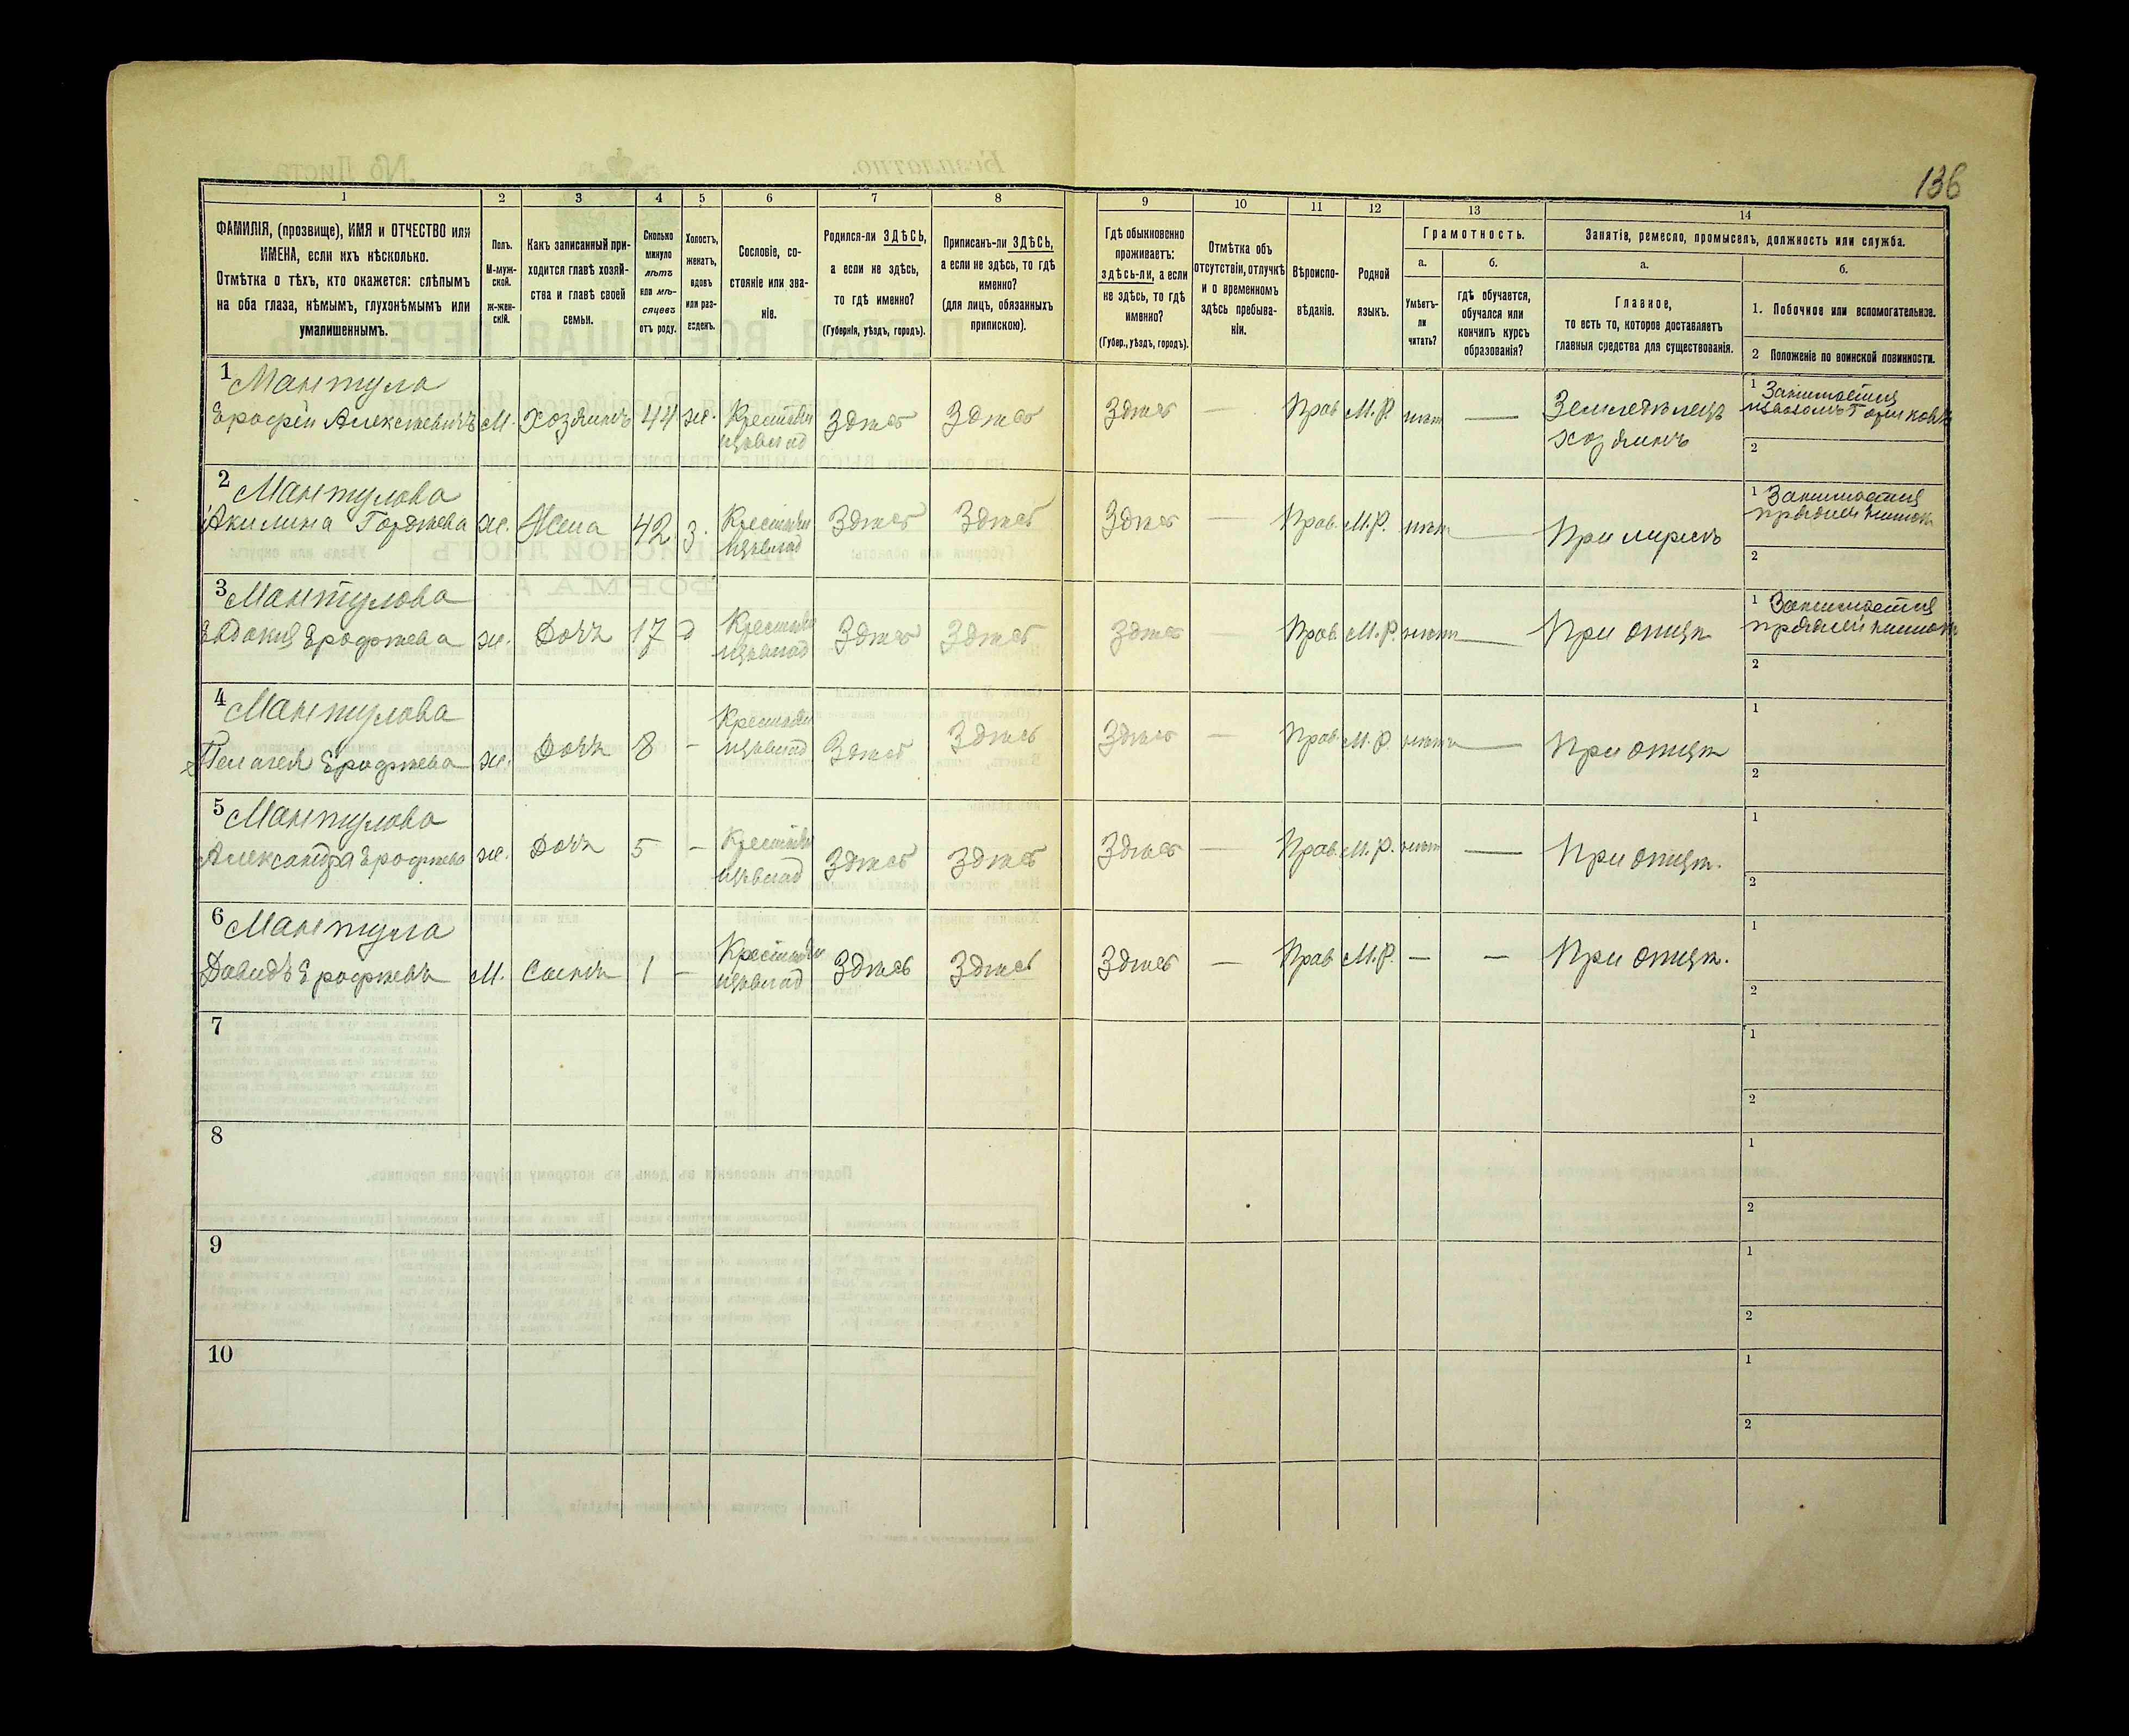 136
1 2 3 4 5 6 7 8 9 10 11 12 13 14
ФАМИЛІЯ, (прозвище), ИМЯ и ОТЧЕСТВО или
ИМЕНА, если ихъ нѣсколько.
Отмѣтка о тѣхъ, кто окажется: слѣпымъ
на оба глаза, нѣмымъ, глухонѣмымъ или
умалишеннымъ.
Полъ.
М-муж-
ской.
ж-жен-
скій.
Какъ записанный при-
ходится главѣ хозяй-
ства и главѣ своей
семьи.
Сколько
минуло
лѣтъ
или мѣ-
сяцевъ
отъ роду.
Холостъ,
женатъ,
вдовъ
или раз-
веденъ.
Сословіе, со-
стояніе или зва-
ніе.
Родился-ли ЗДѢСЬ,
а если не здѣсь,
то гдѣ именно?
(Губернія, уѣздъ, городъ).
Приписанъ-ли ЗДѢСЬ,
а если не здѣсь, то гдѣ
именно?
(для лицъ, обязанныхъ
припискою).
Гдѣ обыкновенно
проживаетъ:
здѣсь-ли, а если
не здѣсь, то гдѣ
именно?
(Губер., уѣздъ, городъ).
Отмѣтка объ
отсутствіи, отлучкѣ
и о временномъ
здѣсь пребыва-
ніи.
Вѣроиспо-
вѣданіе.
Родной
языкъ.
Грамотность.
а.
Умѣетъ-
ли
читать?
б.
гдѣ обучается,
обучался или
кончилъ курсъ
образованія?
Занятіе, ремесло, промыселъ, должность или служба.
а.
Главное,
то есть то, которое доставляетъ
главныя средства для существованія.
б.
1. Побочное или вспомогательное.
2 Положеніе по воинской повинности.
1 Мантула
Ерофѣй Алексѣевичъ М. Хозяинъ 44 ж. Крестьян Здѣсь Здѣсь Здѣсь — Прав М.Р. нѣт — Земледѣлецъ хозяинъ
1 Занимается
2
2 Мантулова
Акилина Гордѣева ж. Жена 42 з. Крестьян Здѣсь Здѣсь Здѣсь — Прав. М.Р. нѣт — При мужѣ
1 Занимается
2
3 Мантулова
Евдокия Ерофѣева ж. Дочь 17 д Крестьян Здѣсь Здѣсь Здѣсь — Прав М.Р. нѣт — При отцѣ
1 Занимается
2
4 Мантулова
Пелагея Ерофѣева ж. Дочь 8 - Крестьян Здѣсь Здѣсь Здѣсь — Прав М.Р. нѣт — При отцѣ
1
2
5 Мантулова
Александра Ерофѣева ж. Дочь 5 - Крестьян Здѣсь Здѣсь Здѣсь — Прав. М.Р. нѣт — При отцѣ.
1
2
6 Мантула
Давидъ Ерофѣевъ М. Сынъ 1 - Крестьян Здѣсь Здѣсь Здѣсь — Прав М.Р. — — При отцѣ.
1
2
7
1
2
8
1
2
9
1
2
10
1
2